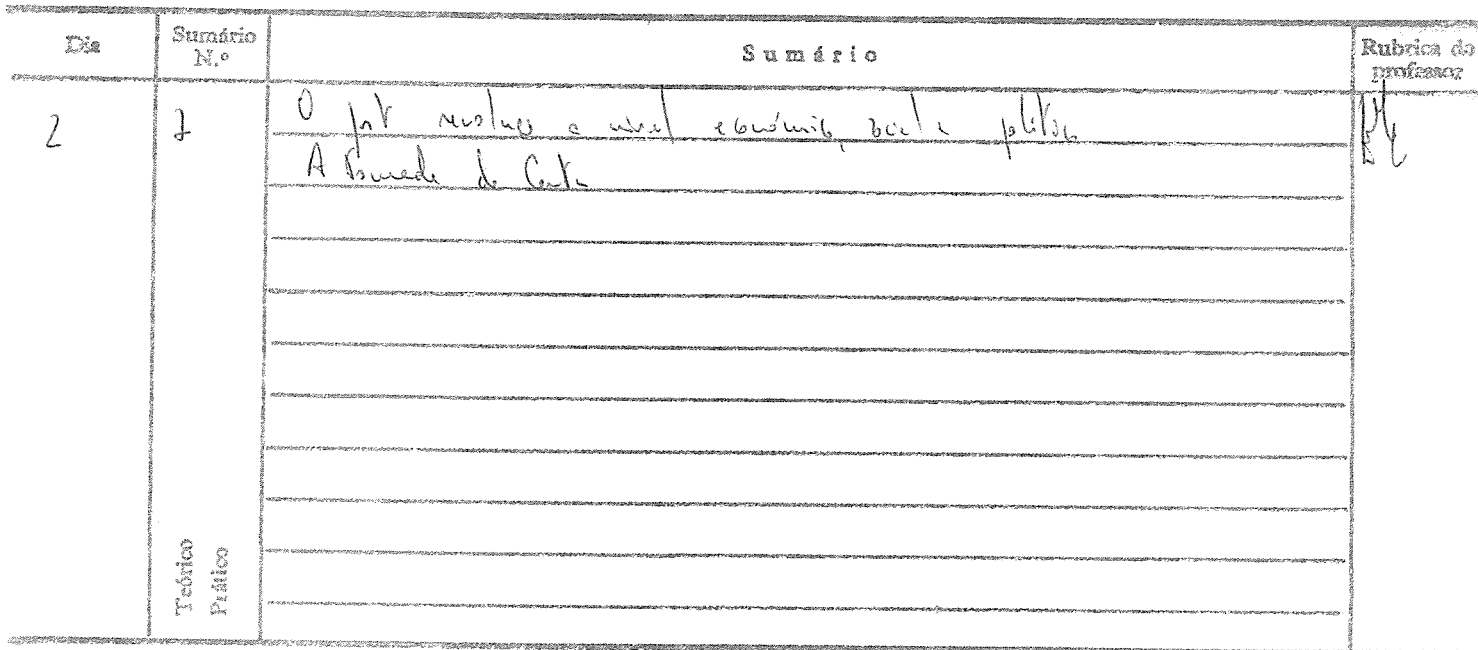 Dia
Sumário N.º
Sumário
Rubrica do professor
2
7
O a nível económico, social e político
A Tomada de Ceuta
Teórico
Prático